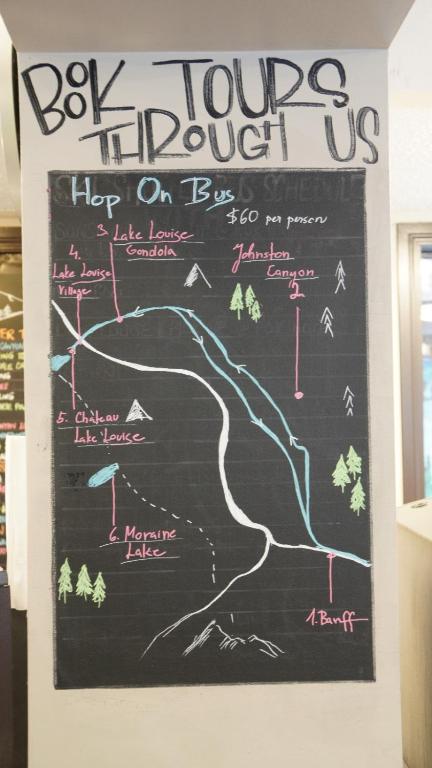 BOOK TOURS
THROUGH US
Hop On Bus
$60 per person
3. Lake Louise
Gondola
4.
Lake Louise
Village
Johnston
Canyon
2
5. Château
Lake Louise
6. Moraine
Lake
1. Banff